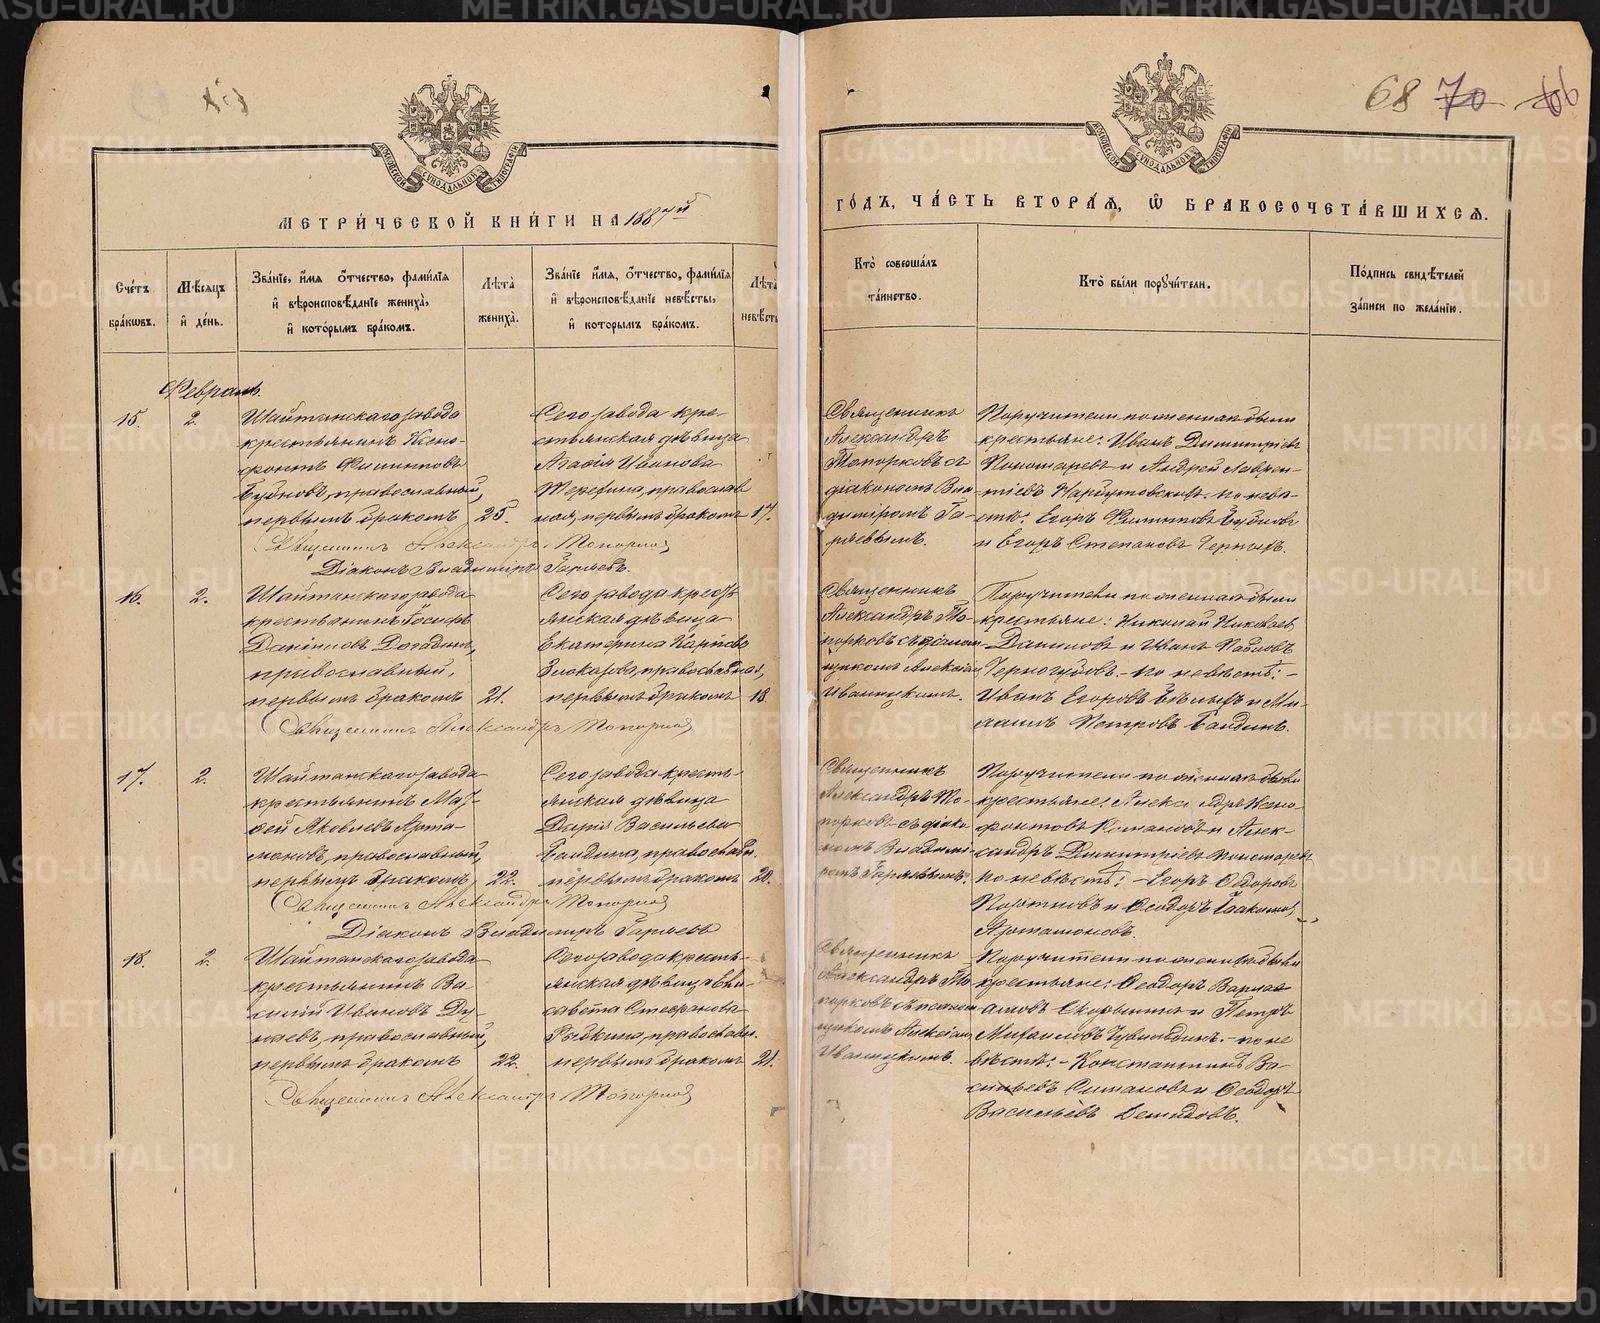 68 70 66
МОСКОВСКОЙ СУНОДАЛЬНОЙ ТИПОГРАФІИ
МОСКОВСКОЙ СУНОДАЛЬНОЙ ТИПОГРАФІИ
МЕТРИ́ЧЕСКОЙ КНИ́ГИ НА 1887й
ГО́ДЪ, ЧА́СТЬ ВТОРА́Ѧ, Ѡ БРАКОСОЧЕТА́ВШИХСѦ.
Сче́тъ бра́кѡвъ.
Мѣ́сяцъ и̂ де́нь.
Зва́нїе, и̂́мя ѻ̂́тчество, фами́лїя
и̂ вѣроисповѣ́данїе жениха̀,
и̂ кото́рымъ бра́комъ.
Лѣ́та жениха̀.
Зва́нїе и̂́мя, ѻ̂́тчество, фами́лїя
и̂ вѣроисповѣ́данїе невѣ́сты,
и̂ которымъ бра́комъ.
Лѣта невѣсты
Кто̀ соверша́лъ
та́инство.
Кто̀ бы́ли порꙋчи́тели.
По́дпись свидѣ́телей
за́писи по жела́нїю.
Февраль.
15.
2.
Шайтанскаго завода
крестьянинъ Ксено-
фонтъ Филипповъ
Бубновъ, православный,
первымъ бракомъ
25.
Сего завода кре-
стьянская дѣвица
Агафія Иванова
православ
ная, первымъ бракомъ
17.
Священникъ
Александръ
Топорковъ съ
діакономъ Вла-
диміромъ Га-
ряевымъ.
Поручители по женихѣ были
крестьяне: Иванъ Димитріевъ
Пономаревъ и Андрей Лаврен-
тіевъ по невѣ-
стѣ: Егоръ Филипповъ Бубновъ
и Егоръ Степановъ Черныхъ.
Священникъ Александръ Топорков
Діаконъ Владиміръ Гаряевъ.
16.
2.
Шайтанскаго завода
крестьянинъ Іосифъ
Даніиловъ
православный,
первымъ бракомъ
21.
Сего завода кресть
янская дѣвица
Екатерина Карпова
Злоказова, православная,
первымъ бракомъ
18.
Священникъ
Александръ То-
порковъ съ псалом
щикомъ Алексіем
Иваницкимъ.
Поручители по женихѣ были
крестьяне: Николай Николаев
Даниловъ и Иванъ Павловъ
Черногубовъ. - по невѣстѣ: -
Иванъ Егоровъ Бѣлыхъ и Ми-
хаилъ Петровъ Бандинъ.
Священникъ Александръ Топорков
17.
2.
Шайтанскаго завода
крестьянинъ Мат-
ѳей Яковлевъ Арта-
моновъ, православный,
первымъ бракомъ
22.
Сего завода кресть-
янская дѣвица
Дарія Васильева
Бандина, православн.
первымъ бракомъ
20.
Священникъ
Александръ То-
порковъ съ діако
номъ Владимі-
ромъ Гаряевымъ.
Поручители по женихѣ были
крестьяне: Александръ Ксено-
фонтовъ и Алек-
сандръ Димитріевъ Пономаревъ
по невѣстѣ: - Егоръ Ѳедоровъ
и Ѳеодоръ
Артамоновъ.
Священникъ Александръ Топорков
Діаконъ Владиміръ Гаряевъ
18.
2.
Шайтанскаго завода
крестьянинъ Ва-
силій Ивановъ Ду-
наевъ, православный,
первымъ бракомъ
22.
Сего завода кресть-
янская дѣвица Ели-
савета Стефанова
Рыбкина, православн.
первымъ бракомъ
21.
Священникъ
Александръ То
порковъ съ псалом
щикомъ Алексіем
Иваницкимъ.
Поручители по женихѣ были
крестьяне: Ѳеодоръ Варлаа
мовъ и Петръ
Михаиловъ - по не
вѣстѣ: - Константинъ Ва-
сильевъ и Ѳеодоръ
Васильевъ Демидовъ.
Священникъ Александръ Топорков
METRIKI.GASO-URAL.RU